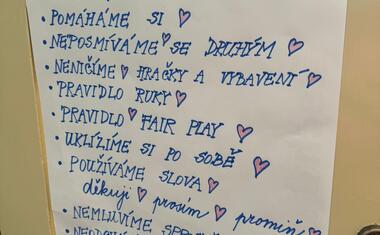 • POMÁHÁME SI
• NEPOSMÍVÁME SE DRUHÝM
• NENIČÍME HRAČKY A VYBAVENÍ
• PRAVIDLO RUKY
• PRAVIDLO FAIR PLAY
• UKLÍZÍME SI PO SOBĚ
• POUŽÍVÁME SLOVA
děkuji prosím promiň
• NEMLUVÍME